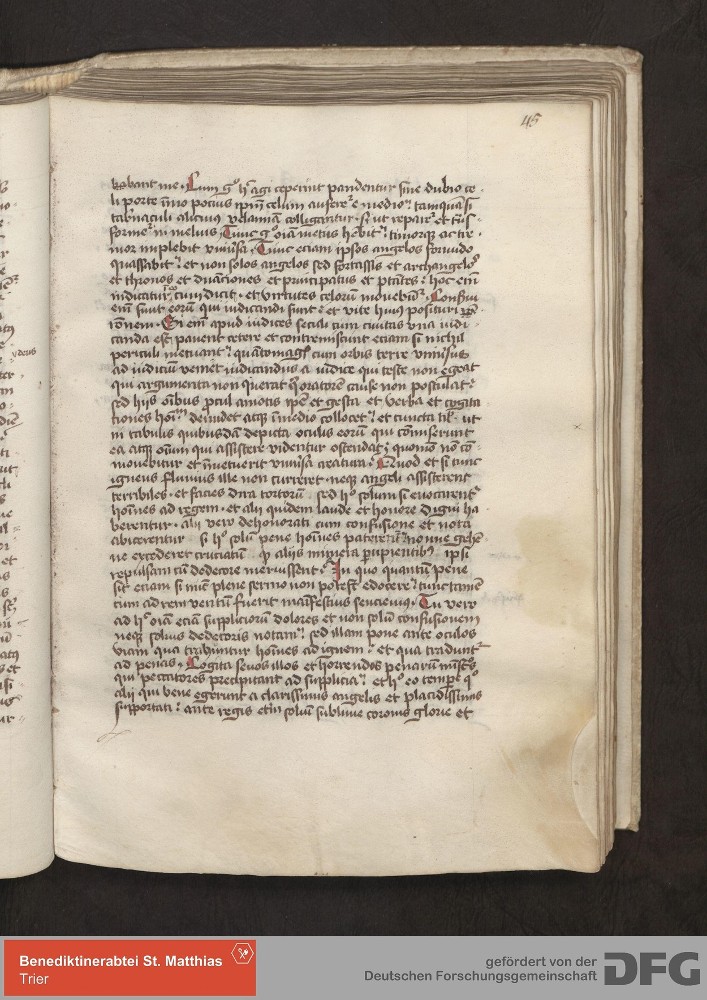 45
bant me. Cum g° h° agi ceperint pandentur sine dubio ce
li porte īmo pocius ipm̄ celum
tab'naculi alicuius
forme in melius. Tunc g° oīa metus h'ebit timorque ac tre
mor implebit vniu'sa. Tunc eciam ipsos angelos formido
quassabit et non solos angelos sed fortassis et archangelos
et thronos et dn̄aciones et principatus et p̄tātes: hoc eīm
indicatur cum dicit. et virtutes celorū mouebūt.
eīm sunt eorū qui iudicandi sunt et vite huius posituri
rōnem. Si eīm apud iudices seculi cum ciuitas vna iudi
canda est pauent cetere et contremiscunt eciam si nichil
periculi metuant: cum orbis terre vniu'sus
ad iudiciū veniet iudicandus a iudice qui teste non egeat
qui argumenta non querat oratorē cause non postulat
sed hijs oībus procul amotis ip̄e et gesta et verba et cogita
ciones hoīm deinde atque in medio collocet et cuncta
in tabulis quibusdā depicta oculis eorū qui
ea atque omīm qui assistere videntur ostendat quomō nō cō
mouebitur et vniu'sa creatura. Quod et si tunc
igneus fluuius ille non curreret. neque angeli assisterent
terribiles. et facies dira tortorū sed h° solum si euocarent
hoīnes ad regem. et alij quidem laude et honore digni ha
berentur. alij vero dehonorati cum confusione et nota
abicerentur si h° solū pene hoīnes paterent nonne gehēn
ne excederet cruciatū alijs munera p'cipientib' ipsi
repulsam cū dedecore meruissent. In quo quantū pene
sit eciam si nūc plene sermo non potest edocere tunc tamē
cum ad rem ventum fuerit manifestius senciemus. Tu vero
ad h° oīa eciā suppliciorū dolores et non solū confusionem
neque solius dedecoris notam sed illam pone ante oculos
viam qua trahuntur hoīnes ad ignem et qua tradunt
ad penas. Cogita seuos illos et horrendos penarū
qui peccatores precipitant ad supplicia et h° eo tempe q°
alij qui bene egerunt a clarissimis angelis et placidissimis
supportati ante regis solū sublime coronis glorie et
Benediktinerabtei St. Matthias
Trier
gefördert von der
Deutschen Forschungsgemeinschaft
DFG